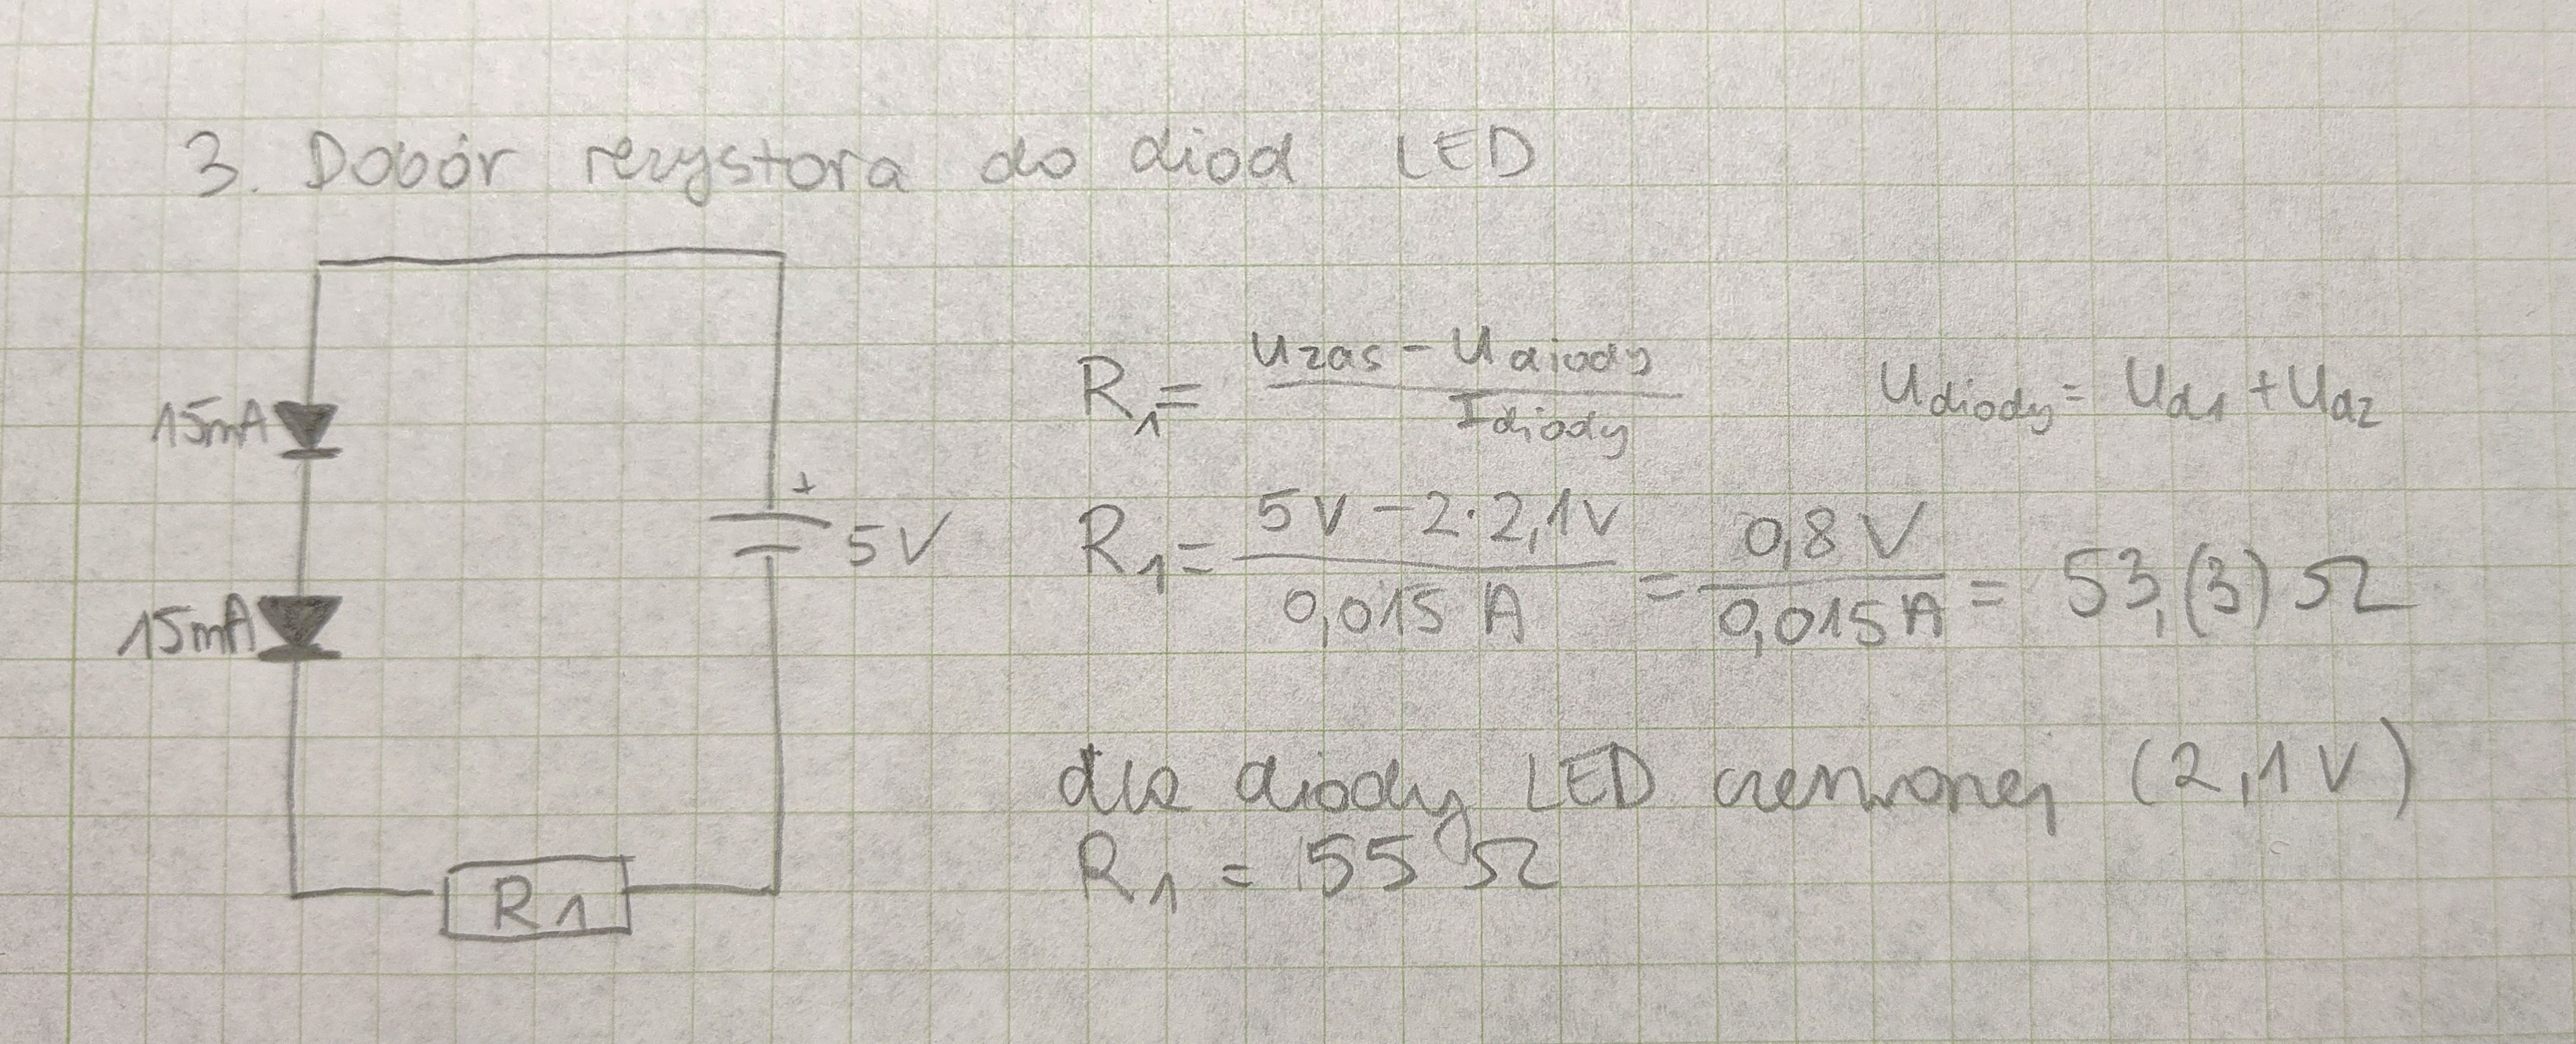 3. Dobór rezystora do diod LED
15mA
15mA
+
5V
R1
R₁ = (Uzas - Udiody) / Idiody
Udiody = Ud1 + Ud2
R₁ = (5V - 2·2,1V) / 0,015 A = 0,8 V / 0,015 A = 53,(3) Ω
dla diody LED czerwonej (2,1 V)
R₁ = 55 Ω